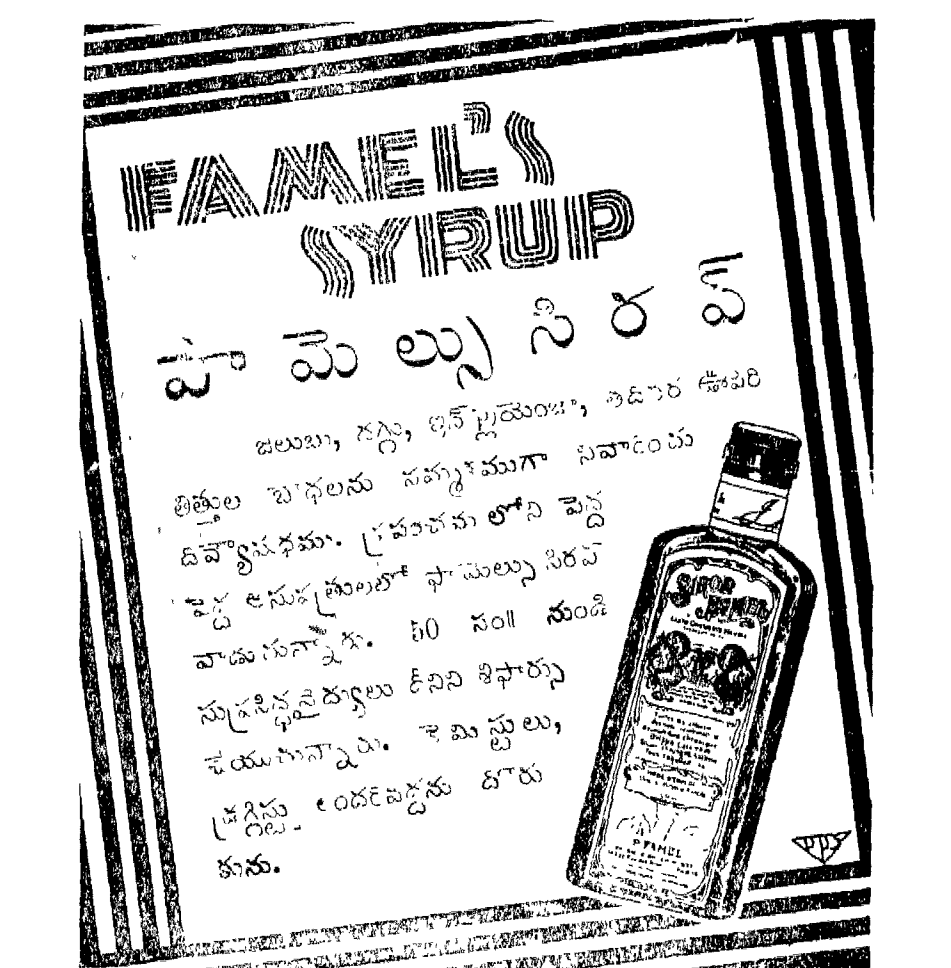 FAMEL'S
SYRUP
ఫామెల్సు సిరప్
జలుబు, దగ్గు, ఇన్‌ఫ్లుయెంజా, ఊపిరి
తిత్తుల బాధలను నివారించు
దివ్యౌషధము. ప్రపంచము లోని పెద్ద
పెద్ద ఆసుపత్రులలో ఫామెల్సు సిరప్
వాడుచున్నారు. 50 సం॥ నుండి
సుప్రసిద్ధవైద్యులు దీనిని శిఫార్సు
చేయుచున్నారు. కెమిస్టులు,
డ్రగ్గిస్టు లందరివద్దను దొరు
కును.
SIROP
FAMEL
P. FAMEL
PPS